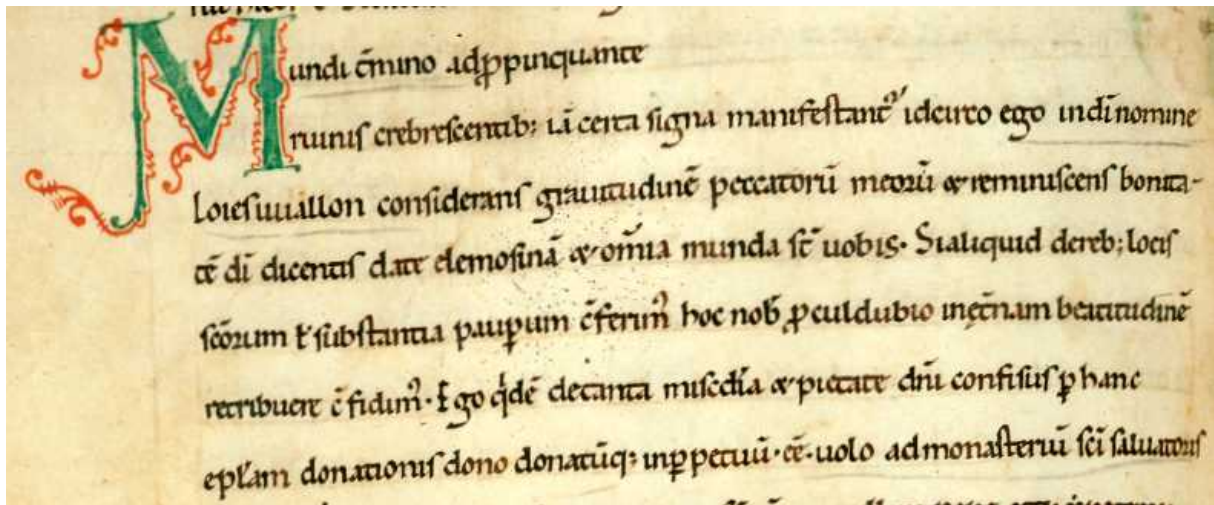 Mundi t̄mino adp̄pinquante
ruinis crebrescentib; iā certa signa manifestant᷑ idcirco ego indī nomine
Loiesuuallon considerans grauitudinē peccatorū meorū & reminiscens bonita-
tē dī dicentis date elemosinā & om̄ia munda s̄t uobis. Si aliquid dereb; locis
sc̄orum ł substantia paup̲um c̄ferim᷒ hoc nob̄ ꝓculdubio inęt̄nam beatitudinē
retribuere c̄fidim᷒. Ego q̇dē detanta misc̄dīa & pietate dn̄i confisus ꝑ hanc
epł̄am donationis dono donatūq; inꝑpetuū. ēē. uolo ad monasteriū sc̄i saluatoris